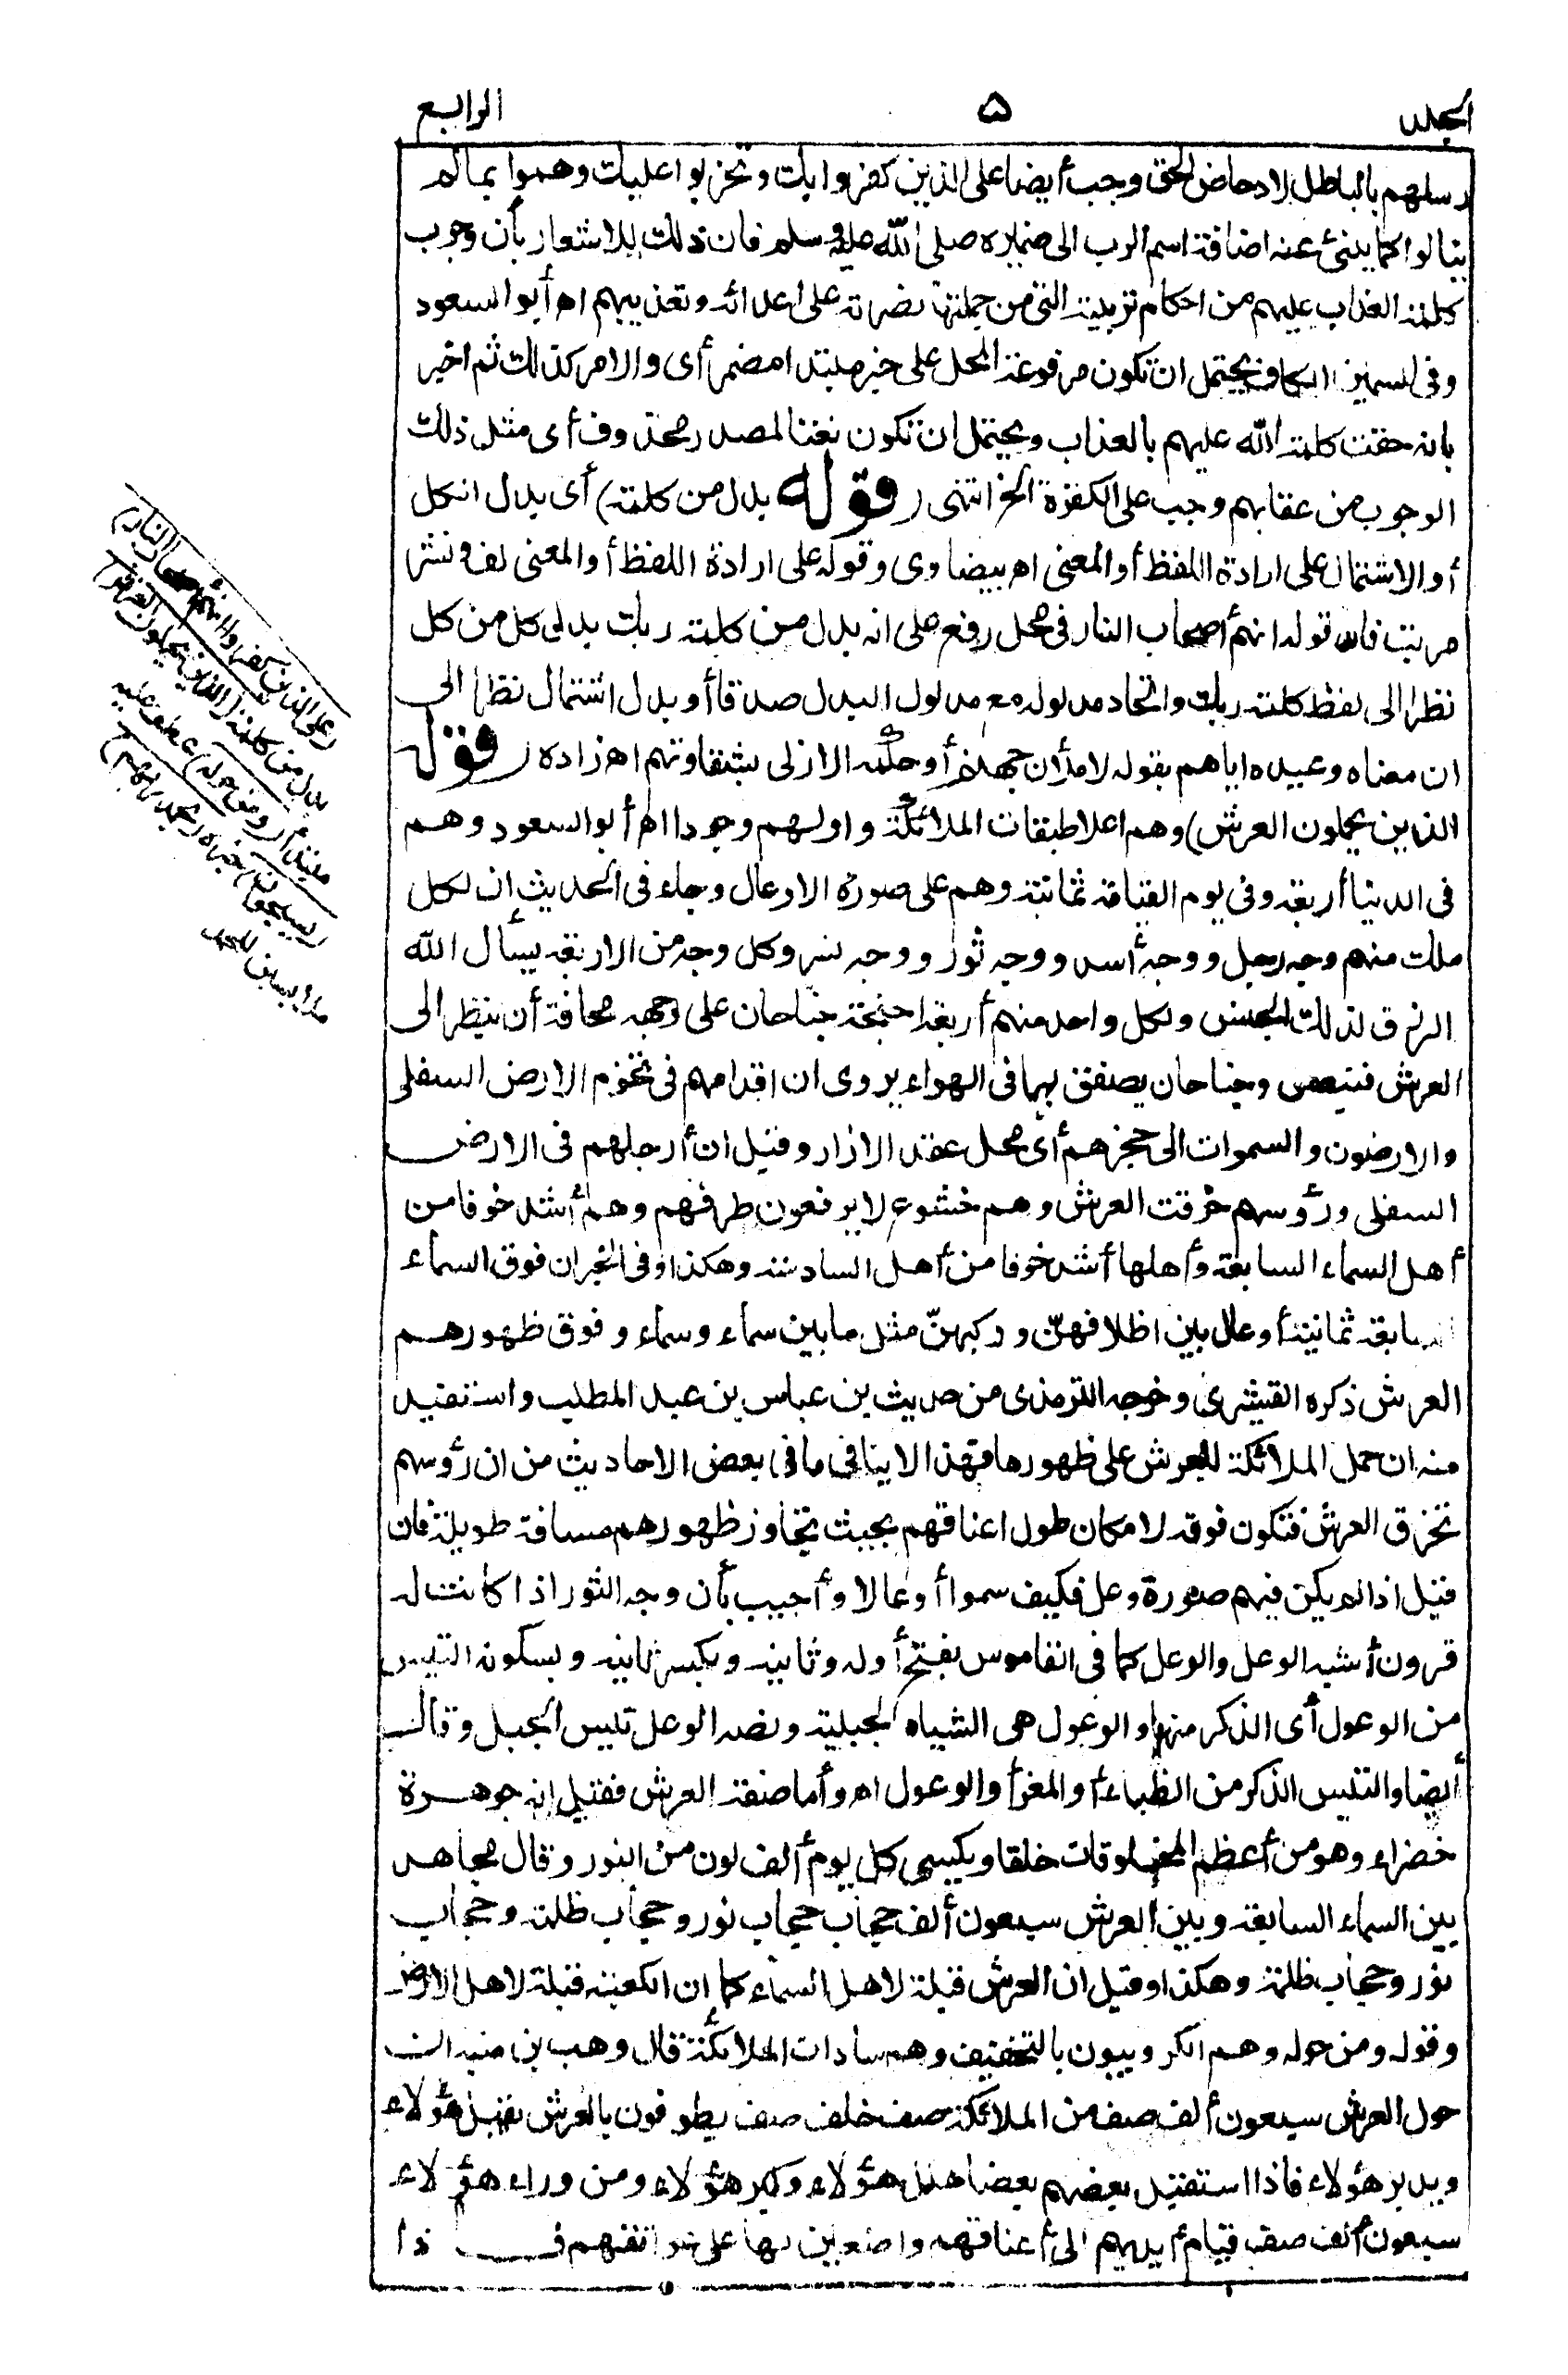 الجلد ٥ الرابع
رسلهم بالباطل لادحاض الحق وجب أيضا على الذين كفروا بك وتحزبوا عليك وهموا بمالم
ينالوا كما ينبئ عنه اضافة اسم الرب الى ضميره صلى الله عليه وسلم فان ذلك للاشعار بأن وجوب
كلمة العذاب عليهم من احكام تربيته التى من جملتها نصرته على اعدائه وتعذيبهم اه أبو السعود
وفى السمين الكاف يحتمل ان تكون مرفوعة المحل على خبر مبتدا مضمر أى والامر كذلك ثم اخبر
بانه حقت كلمة الله عليهم بالعذاب ويحتمل ان تكون نعتا لمصدر محذوف أى مثل ذلك
الوجوب من عقابهم وجب على الكفرة الخ انتهى (قوله بدل من كلمة) أى بدل الكل
أو الاشتمال على ارادة اللفظ أو المعنى اه بيضاوى وقوله على ارادة اللفظ أو المعنى لف ونشر
مرتب فان قوله انهم أصحاب النار فى محل رفع على انه بدل من كلمة ربك بدل كل من كل
نظرا الى لفظ كلمة ربك واتحاد مدلوله مع مدلول البدل صدقا أو بدل اشتمال نظرا الى
ان معناه وعيده اياهم بقوله لاملأن جهنم أو حكمه الازلى بشقاوتهم اه زاده (قوله
الذين يحملون العرش) وهم اعلا طبقات الملائكة واولهم وجودا اه أبو السعود وهم
فى الدنيا أربعة وفى يوم القيامة ثمانية وهم على صورة الاوعال وجاء فى الحديث ان لكل
ملك منهم وجه رجل ووجه أسد ووجه ثور ووجه نسر وكل وجه من الاربعة يسأل الله
الرزق لذلك الجنس ولكل واحد منهم أربعة اجنحة جناحان على وجهه مخافة أن ينظر الى
العرش فيصعق وجناحان يصفق بهما فى الهواء يروى ان اقدامهم فى تخوم الارض السفلى
والارضون والسموات الى حجزهم أى محل عقد الازار وقيل ان أرجلهم فى الارض
السفلى ورؤسهم خرقت العرش وهم خشوع لا يرفعون طرفهم وهم أشد خوفا من
أهل السماء السابعة وأهلها أشد خوفا من أهل السادسة وهكذا وفى الخبر ان فوق السماء
السابعة ثمانية أوعال بين اظلافهنّ وركبهنّ مثل ما بين سماء وسماء وفوق ظهورهم
العرش ذكره القشيرى وخرجه الترمذى من حديث بن عباس بن عبد المطلب واستفيد
منه ان حمل الملائكة للعرش على ظهورها فهذا لا ينافى ما فى بعض الاحاديث من ان رؤسهم
تخرق العرش فتكون فوقه لامكان طول اعناقهم بحيث يتجاوز ظهورهم مسافة طويلة فان
قيل اذا لم يكن فيهم صورة وعل فكيف سموا أوعالا وأجيب بأن وجه الثور اذا كانت له
قرون أشبه الوعل والوعل كما فى القاموس بفتح أوله وثانيه وبكسر ثانيه وبسكونه التيس
من الوعول أى الذكر منها والوعول هى الشياه الجبلية ونصه الوعل تيس الجبل وقال
أيضا والتيس الذكر من الظباء أو المعز أو الوعول اه وأما صفة العرش فقيل انه جوهرة
خضراء وهو من أعظم المخلوقات خلقا ويكسى كل يوم ألف لون من النور وقال مجاهد
بين السماء السابعة وبين العرش سبعون ألف حجاب حجاب نور وحجاب ظلمة وحجاب
نور وحجاب ظلمة وهكذا وقيل ان العرش قبلة لاهل السماء كما ان الكعبة قبلة لاهل الارض
وقوله ومن حوله وهم الكروبيون بالتخفيف وهم سادات الملائكة قال وهب بن منبه ان
حول العرش سبعون ألف صف من الملائكة صف خلف صف يطوفون بالعرش يقبل هؤلاء
ويدبر هؤلاء فاذا استقبل بعضهم بعضا هلل هؤلاء وكبر هؤلاء ومن وراء هؤلاء
سبعون ألف صف قيام أيديهم الى أعناقهم واضعين لها على عواتقهم فـــذا
(على الذين كفروا انهم أصحاب النار)
بدل من كلمة (الذين يحملون العرش)
مبتدأ (ومن حوله) عطف عليه
(يسبحون) خبره (بحمد ربهم)
ملابسين للحمد